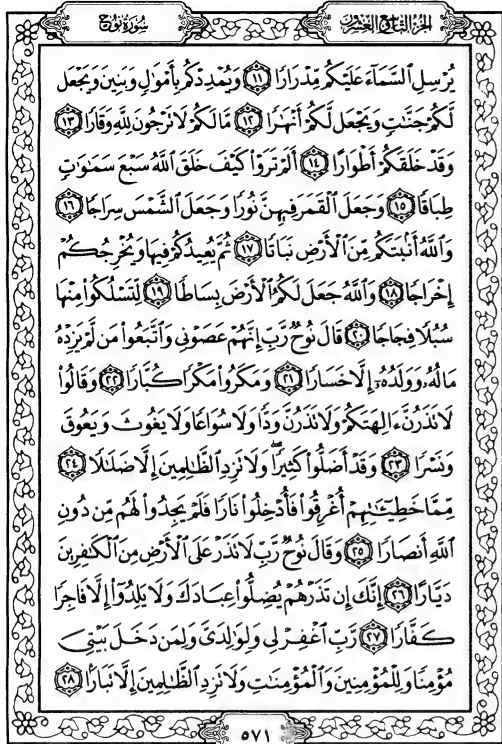 الجزء التاسع والعشرون سورة نوح
يُرْسِلِ ٱلسَّمَآءَ عَلَيْكُم مِّدْرَارًا ١١ وَيُمْدِدْكُم بِأَمْوَٰلٍ وَبَنِينَ وَيَجْعَل
لَّكُمْ جَنَّٰتٍ وَيَجْعَل لَّكُمْ أَنْهَٰرًا ١٢ مَّا لَكُمْ لَا تَرْجُونَ لِلَّهِ وَقَارًا ١٣
وَقَدْ خَلَقَكُمْ أَطْوَارًا ١٤ أَلَمْ تَرَوْا۟ كَيْفَ خَلَقَ ٱللَّهُ سَبْعَ سَمَٰوَٰتٍ
طِبَاقًا ١٥ وَجَعَلَ ٱلْقَمَرَ فِيهِنَّ نُورًا وَجَعَلَ ٱلشَّمْسَ سِرَاجًا ١٦
وَٱللَّهُ أَنۢبَتَكُم مِّنَ ٱلْأَرْضِ نَبَاتًا ١٧ ثُمَّ يُعِيدُكُمْ فِيهَا وَيُخْرِجُكُمْ
إِخْرَاجًا ١٨ وَٱللَّهُ جَعَلَ لَكُمُ ٱلْأَرْضَ بِسَاطًا ١٩ لِّتَسْلُكُوا۟ مِنْهَا
سُبُلًا فِجَاجًا ٢٠ قَالَ نُوحٌ رَّبِّ إِنَّهُمْ عَصَوْنِى وَٱتَّبَعُوا۟ مَن لَّمْ يَزِدْهُ
مَالُهُۥ وَوَلَدُهُۥٓ إِلَّا خَسَارًا ٢١ وَمَكَرُوا۟ مَكْرًا كُبَّارًا ٢٢ وَقَالُوا۟
لَا تَذَرُنَّ ءَالِهَتَكُمْ وَلَا تَذَرُنَّ وَدًّا وَلَا سُوَاعًا وَلَا يَغُوثَ وَيَعُوقَ
وَنَسْرًا ٢٣ وَقَدْ أَضَلُّوا۟ كَثِيرًا ۖ وَلَا تَزِدِ ٱلظَّٰلِمِينَ إِلَّا ضَلَٰلًا ٢٤
مِّمَّا خَطِيٓـَٰٔتِهِمْ أُغْرِقُوا۟ فَأُدْخِلُوا۟ نَارًا فَلَمْ يَجِدُوا۟ لَهُم مِّن دُونِ
ٱللَّهِ أَنصَارًا ٢٥ وَقَالَ نُوحٌ رَّبِّ لَا تَذَرْ عَلَى ٱلْأَرْضِ مِنَ ٱلْكَٰفِرِينَ
دَيَّارًا ٢٦ إِنَّكَ إِن تَذَرْهُمْ يُضِلُّوا۟ عِبَادَكَ وَلَا يَلِدُوٓا۟ إِلَّا فَاجِرًا
كَفَّارًا ٢٧ رَّبِّ ٱغْفِرْ لِى وَلِوَٰلِدَىَّ وَلِمَن دَخَلَ بَيْتِىَ
مُؤْمِنًا وَلِلْمُؤْمِنِينَ وَٱلْمُؤْمِنَٰتِ وَلَا تَزِدِ ٱلظَّٰلِمِينَ إِلَّا تَبَارًۢا ٢٨
٥٧١